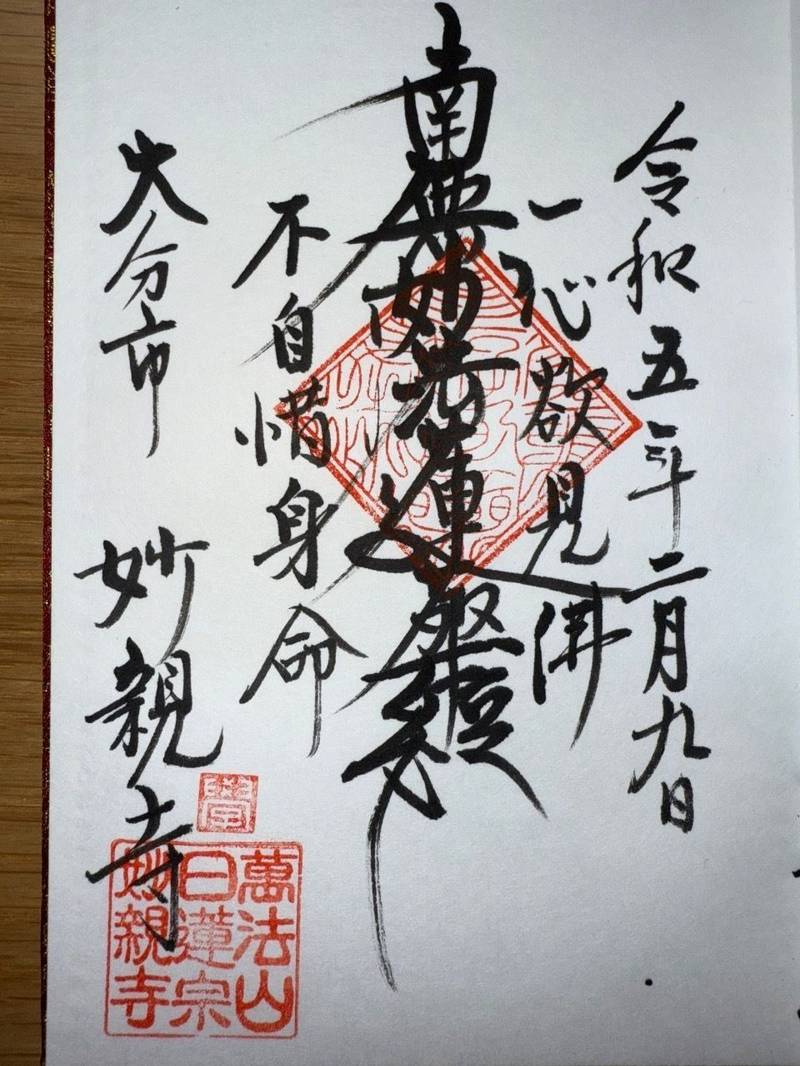 令和五年二月九日
一心欲見佛
南無妙法蓮華経
不自惜身命
大分市 妙親寺
萬法山
日蓮宗
妙親寺